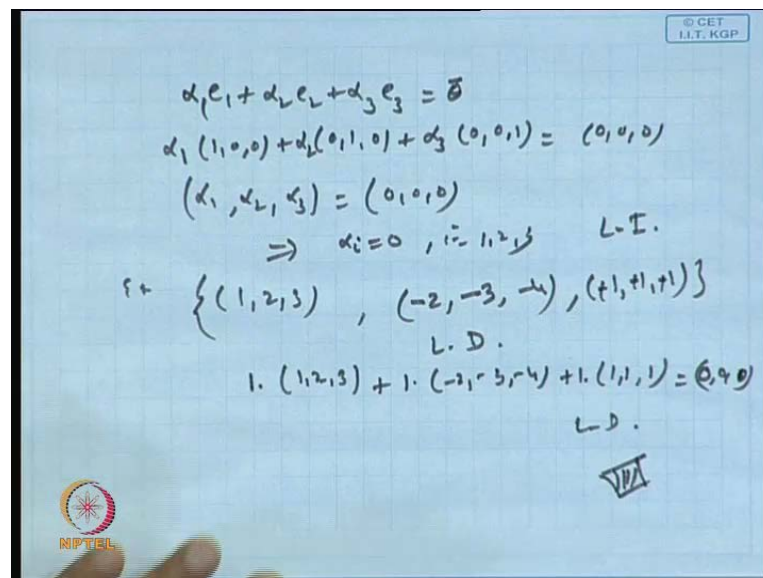 © CET
I.I.T. KGP
α₁e₁ + α₂e₂ + α₃e₃ = θ̄
α₁ (1,0,0) + α₂(0,1,0) + α₃ (0,0,1) = (0,0,0)
(α₁, α₂, α₃) = (0,0,0)
⇒ αᵢ = 0, i = 1,2,3 L.I.
{(1,2,3), (-2,-3,-4), (+1,+1,+1)}
L.D.
1. (1,2,3) + 1. (-2,-3,-4) + 1. (1,1,1) = (0,0,0)
L.D.
NPTEL